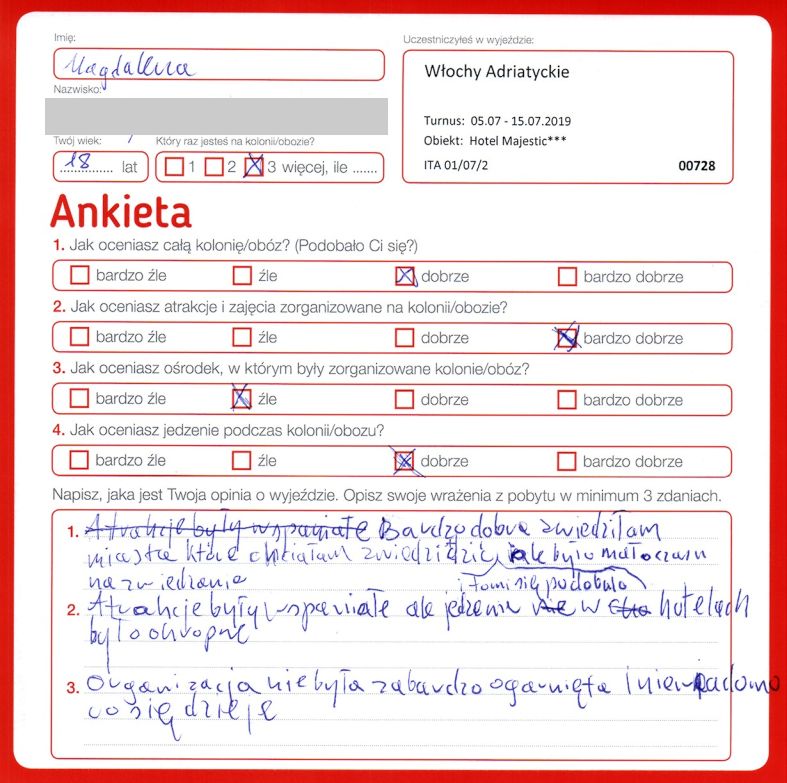 Imię:
Magdalena
Nazwisko:
Twój wiek:
18 lat
Który raz jesteś na kolonii/obozie?
1 2 3 więcej, ile .......
Uczestniczyłeś w wyjeździe:
Włochy Adriatyckie
Turnus: 05.07 - 15.07.2019
Obiekt: Hotel Majestic***
ITA 01/07/2 00728
Ankieta
1. Jak oceniasz całą kolonię/obóz? (Podobało Ci się?)
bardzo źle źle dobrze bardzo dobrze
2. Jak oceniasz atrakcje i zajęcia zorganizowane na kolonii/obozie?
bardzo źle źle dobrze bardzo dobrze
3. Jak oceniasz ośrodek, w którym były zorganizowane kolonie/obóz?
bardzo źle źle dobrze bardzo dobrze
4. Jak oceniasz jedzenie podczas kolonii/obozu?
bardzo źle źle dobrze bardzo dobrze
Napisz, jaka jest Twoja opinia o wyjeździe. Opisz swoje wrażenia z pobytu w minimum 3 zdaniach.
1. Atrakcje były wspaniałe Bardzo dobre zwiedziłam
miasta które chciałam zwiedzić ale było mało czasu
na zwiedzanie i to mi się podobało
2. Atrakcje były wspaniałe ale jedzenie nie w hotelach
było okropne
3. Organizacja nie była za bardzo ogarnięta i nie wiadomo
co się dzieje